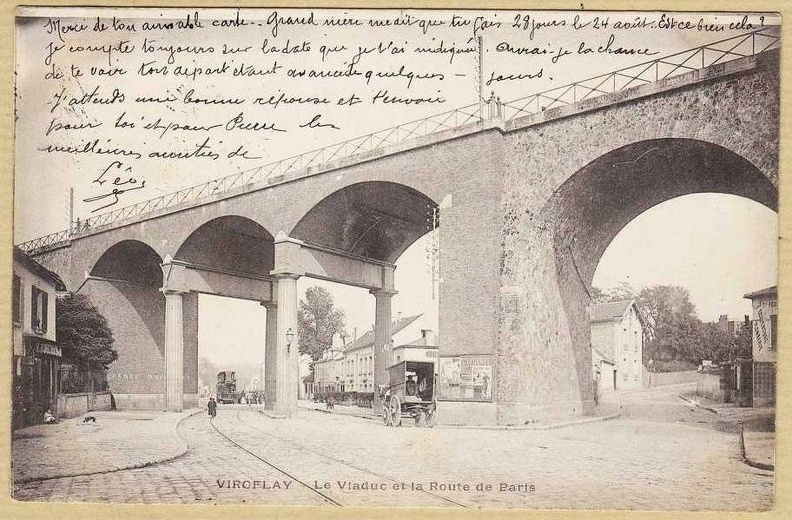 Merci de ton aimable carte.. Grand mère me dit que tu fais 28 jours le 24 août.. Est ce bien cela?
je compte toujours sur la date que je t'ai indiquée. Aurai-je la chance
de te voir ton départ étant avancé de quelques jours.
J'attends une bonne réponse et t'envoie
pour toi et pour Pierre les
meilleures amitiés de
Léo
VIROFLAY - Le Viaduc et la Route de Paris